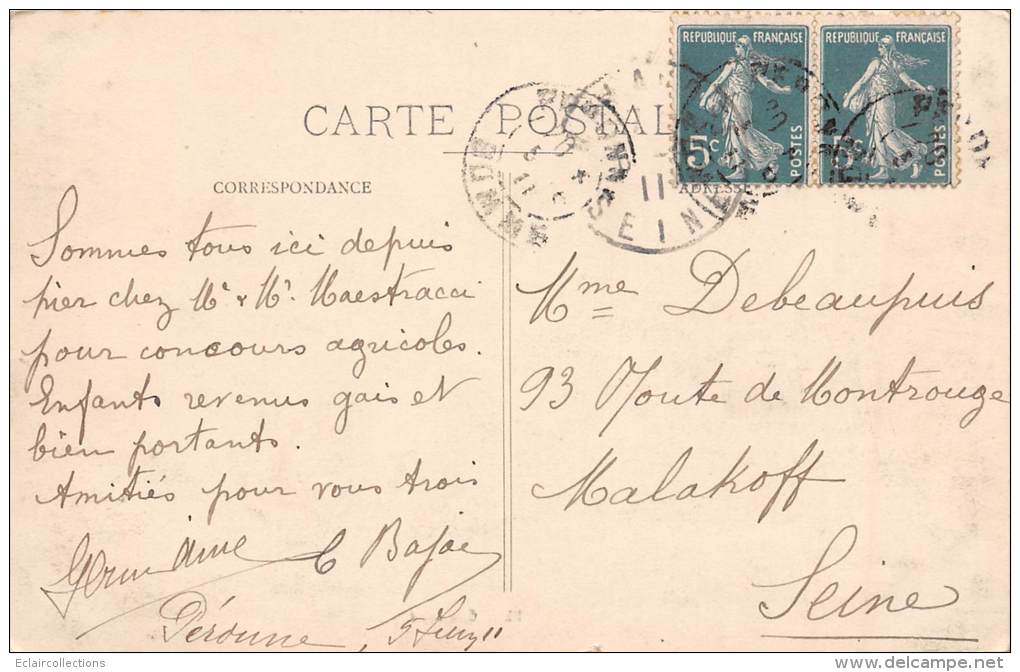 CARTE POSTALE
CORRESPONDANCE
ADRESSE
REPUBLIQUE FRANÇAISE
5c
POSTES
REPUBLIQUE FRANÇAISE
5c
POSTES
SEINE
11
Sommes tous ici depuis
hier chez Mr & Mr Maestracci
pour concours agricoles.
Enfants revenus gais et
bien portants.
Amitiés pour vous trois
Germaine
Péronne
11
Mme Debeaupuis
93 Route de Montrouge
Malakoff
Seine
Eclaircollections
http://www.delcampe.net